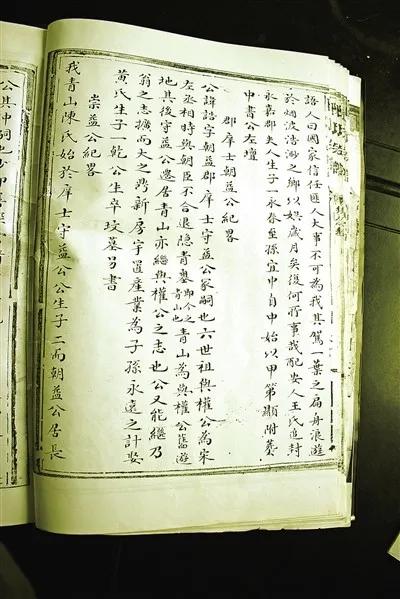 語人曰國家信任匪人大事不可為我其駕一葉之扁舟浪遊
於烟波浩渺之鄉以娛歲月矣復何所事哉配安人王氏追封
永嘉郡夫人生子一永泰至孫宜中自申始以甲第顯附葬
申書公左壇
郡庠士朝益公紀畧
公諱諮字朝益郡庠士守益公冢嗣也六世祖與權公為宋
左丞相時與朝臣不合退隱青墩即今之青山也青山為與權公舊遊
地其後守益公遷居青山亦繼與權公之志也公又能繼乃
翁之志擴而大之鼎新房宇置產業為子孫永遠之計娶
黃氏生子一乾公生卒坟墓另書
崇益公紀畧
我青山陳氏始於庠士守益公公生子二而朝益公居長
公其仲嗣也